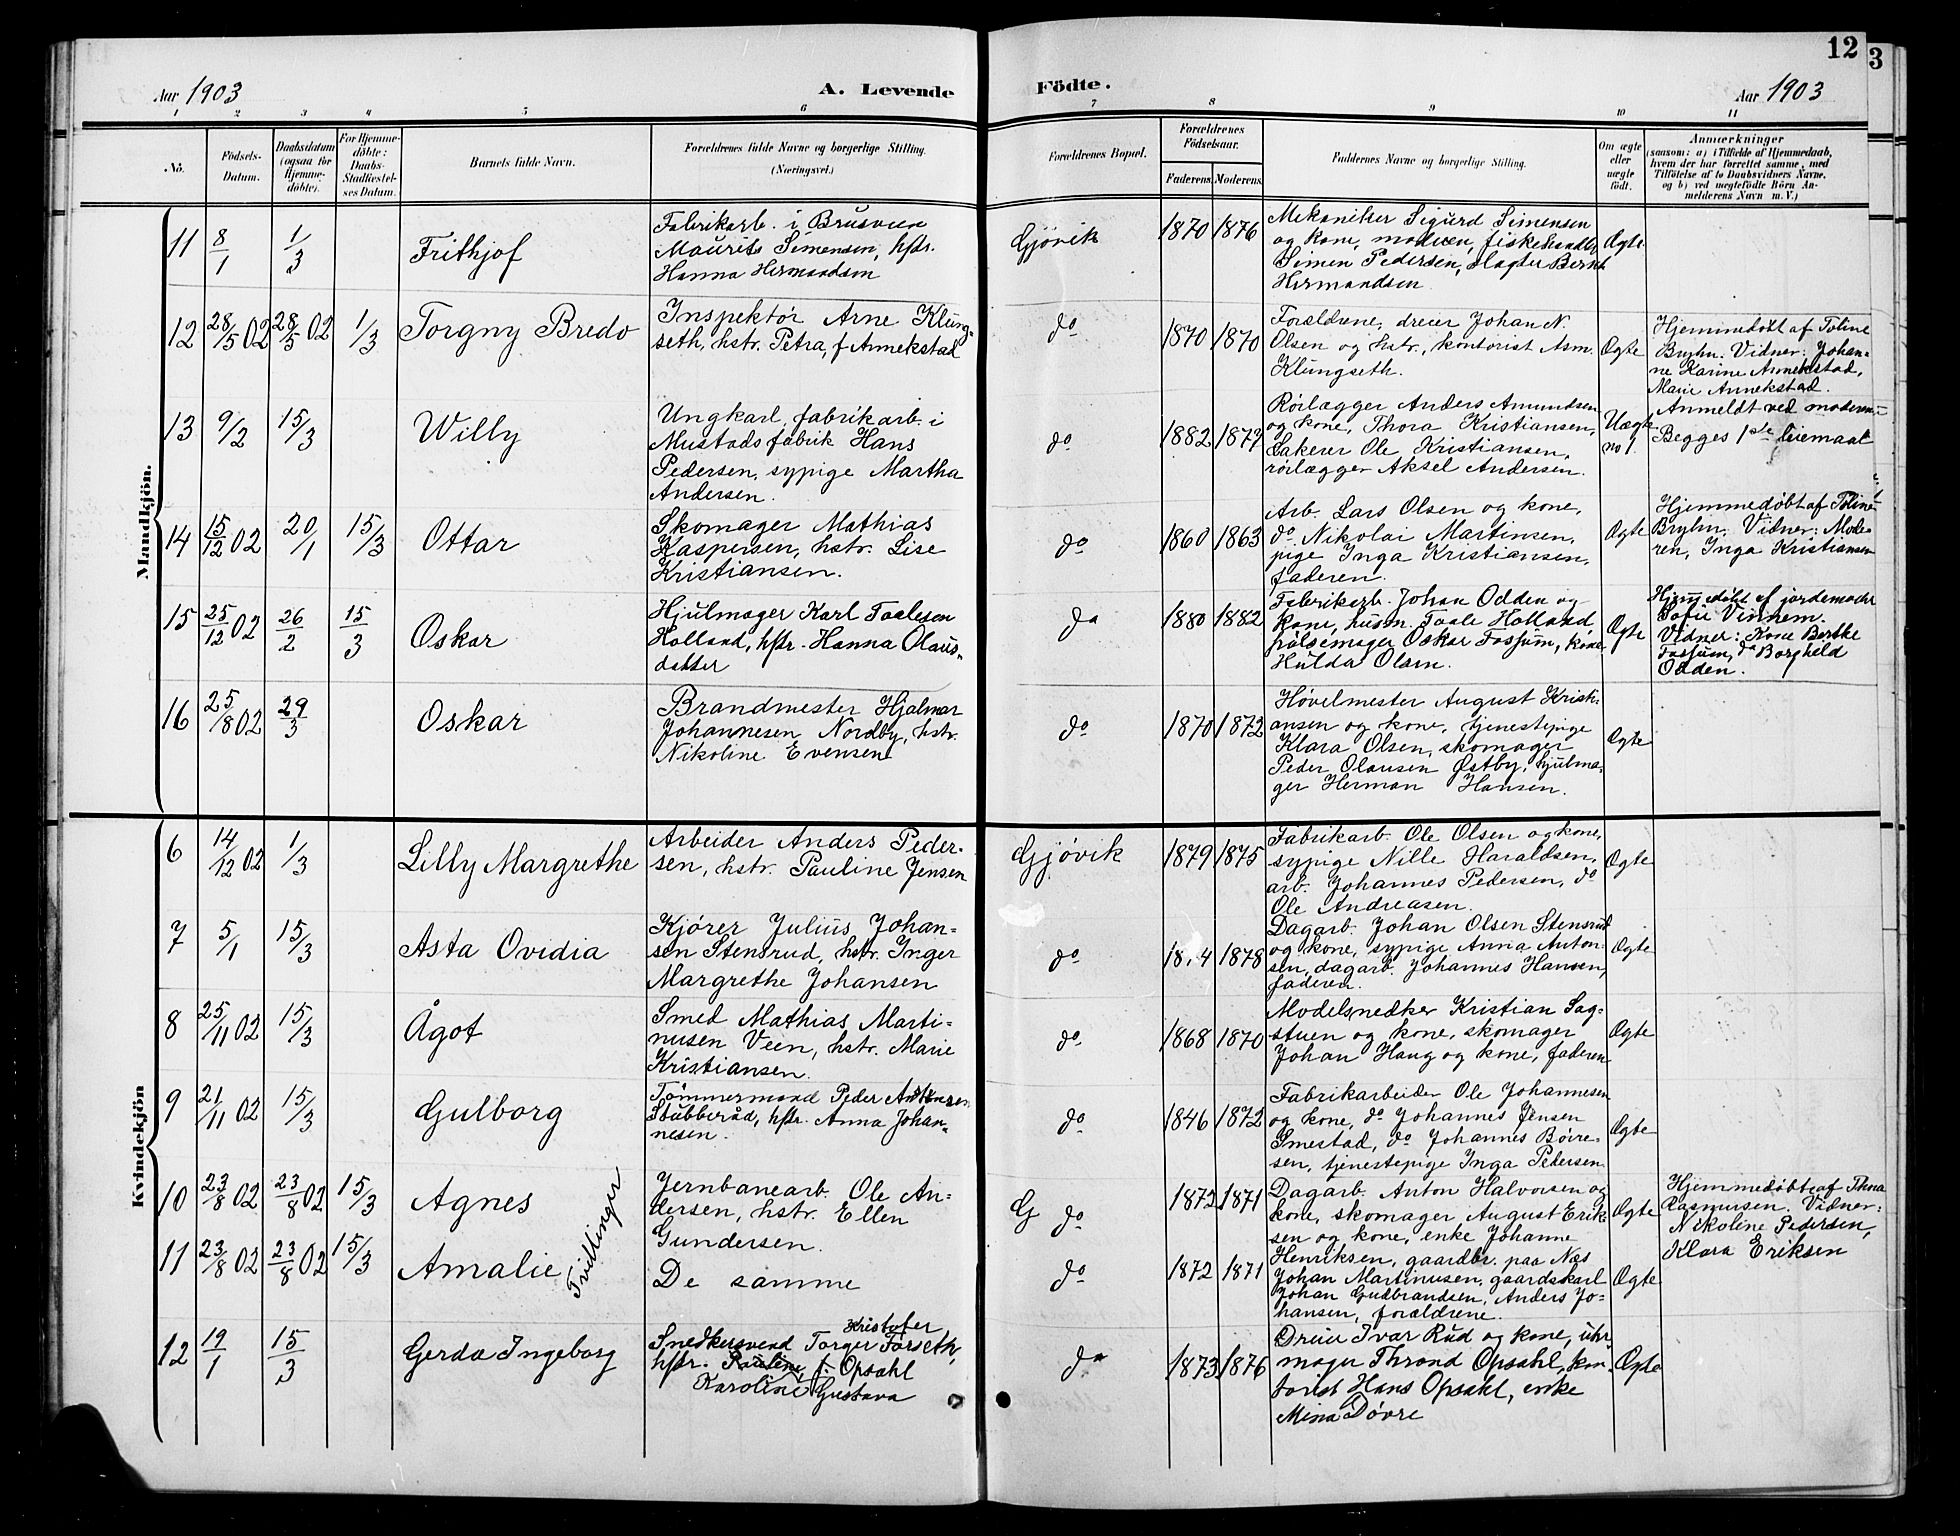 Aar 1903
A. Levende
1 2 3 4 5 6
No.
Födsels-
Datum.
Daabsdatum
(ogsaa for
Hjemme-
döbte).
For Hjemme-
döbte:
Daabs-
Stadfæstel-
ses Datum.
Barnets fulde Navn.
Forældrenes fulde Navne og borgerlige Stilling.
(Næringsvei.)
Mandkjön.
11 8/1 1/3 Frithjof
Fabrikarb. i Brusveen
Maurits Simensen, hstr.
Hanna Hermandsen
12 28/5 02 28/5 02 1/3 Torgny Bredo
Inspektör Arne Klung-
seth, hstr. Petra, f Annekstad
13 9/2 15/3 Willy
Ungkarl, fabrikarb. i
Mustads fabrik Hans
Pedersen, sypige Martha
Andersen.
14 15/12 02 20/1 15/3 Ottar
Skomager Mathias
Kaspersen, hstr. Lise
Kristiansen.
15 25/12 02 26/2 15/3 Oskar
Hjulmager Karl Taalesen
Holland, hstr. Hanna Olaus-
datter
16 25/8 02 29/3 Oskar
Brandmester Hjalmar
Johannesen Nordby, hstr.
Nikoline Evensen
Kvindekjön
6 14/12 02 1/3 Lilly Margrethe
Arbeider Anders Peder-
sen, hstr. Pauline Jensen
7 5/1 15/3 Asta Ovidia
Kjører Julius Johan-
sen Stensrud, hstr. Inger
Margrethe Johansen
8 25/11 02 15/3 Ågot
Smed Mathias Marti-
nusen Veen, hstr. Marie
Kristiansen.
9 21/11 02 15/3 Gulborg
Tømmermand Peder
Stubberud, hstr. Anna Johan-
nesen.
10 23/8 02 23/8 02 15/3 Agnes
Jernbanearb. Ole An-
dersen, hstr. Ellen
Gundersen.
11 23/8 02 23/8 02 15/3 Amalie
Tvillinger
De samme
12 19/1 15/3 Gerda Ingeborg
Kristofer
Snedkersvend Torger Forseth,
hstr. Pauline, f. Opsahl
Karoline Gustava
12
3
Födte.
Aar 1903
7 8 9 10 11
Forældrenes Bopæl.
Forældrenes
Födselsaar.
Faderens. Moderens.
Faddernes Navne og borgerlige Stilling.
Om ægte
eller
uægte
födt.
Anmærkninger
(saasom: a) i Tilfælde af Hjemmedaab,
hvem der har forrettet samme, med
Tilföielse af to Daabsvidners Navne,
og b) ved uægtefödte Börn An-
melderens Navn m. V.)
Gjøvik 1870 1876
Mekaniker Sigurd Simensen
og kone, moderen, fiskehandler
Simen Pedersen, slagter Bernt
Hermandsen
Ægte
do 1870 1870
Forældrene, dreier Johan N.
Olsen og hstr., kontorist Asm.
Klungseth.
Ægte
Hjemmedöbt af Toline
Bryhn. Vidner: Johan-
ne Karine Annekstad,
Marie Annekstad.
do 1882 1877
Rörlægger Anders Amundsen
og kone, Thora Kristiansen,
Lakerer Ole Kristiansen,
rörlægger Aksel Andersen.
Uægte
no 1.
Anmeldt ved moderen
Begges 1ste leiemaal
do 1860 1863
Arb. Lars Olsen og kone,
do Nikolai Martinsen,
pige Inga Kristiansen,
faderen.
Ægte
Hjemmedøbt af Toline
Bryhn. Vidner: Mode-
ren, Inga Kristiansen
do 1880 1882
Fabrikarb. Johan Odden og
kone, husm. Taale Holland
pölsemager Oskar Fossum, kone
Hulda Olsen.
Ægte
Hjemmedøbt af jordemoder
Sofie Vinnem.
Vidner: Kone Berthe
Fossum, do Borghild
Odden.
do 1870 1872
Høvelmester August Kristi-
ansen og kone, tjenestepige
Klara Olsen, skomager
Peder Olausen Østby, hjulma-
ger Herman Hansen.
Ægte
Gjøvik 1879 1875
Fabrikarb. Ole Olsen og kone,
sypige Nille Haraldsen,
arb. Johannes Pedersen, do
Ole Andreasen.
Ægte
do 1878
Dagarb. Johan Olsen Stensrud
og kone, sypige Anna Anton-
sen, dagarb. Johannes Hansen,
faderen.
Ægte
do 1868 1870
Modelsnedker Kristian Sag-
stuen og kone, skomager
Johan Haug og kone, faderen
Ægte
do 1846 1872
Fabrikarbeider Ole Johannesen
og kone, do Johannes Jensen
Smestad, do Johannes Böire-
sen, tjenestepige Inga Pedersen
Ægte
G do 1872 1871
Dagarb. Anton Halvorsen og
kone, skomager August Erik-
sen og kone, enke Johanne
Ægte
Hjemmedøbte af Thea
Rasmussen. Vidner:
Nikoline Pedersen,
Klara Eriksen
do 1872 1871
Henriksen, gaardbr. paa Næs
Johan Martinusen, gaardskarl
Johan Gudbrandsen, Anders Jo-
hansen, forældrene.
Ægte
do 1873 1876
Dreier Ivar Rud og kone, uhr-
mager Thrond Opsahl, kon-
torist Hans Opsahl, enke
Mina Dövre
Ægte